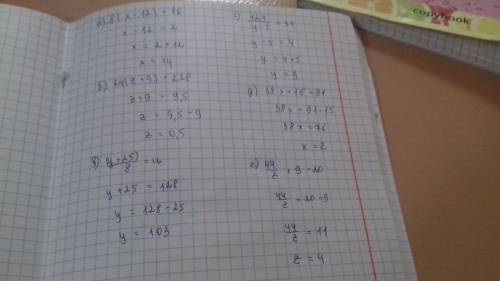 а) 8(x-12)=16
x-12=2
x=2+12
x=14
б) 24(z+9)=228
z+9=9,5
z=9,5-9
z=0,5
в) (y+25)/8=16
y+25=128
y=128-25
y=103
y-5=4
y=4+5
y=9
д) 38x+15=91
38x=91-15
38x=76
x=2
е) 44/z+9=20
44/z=20-9
44/z=11
z=4
copybook